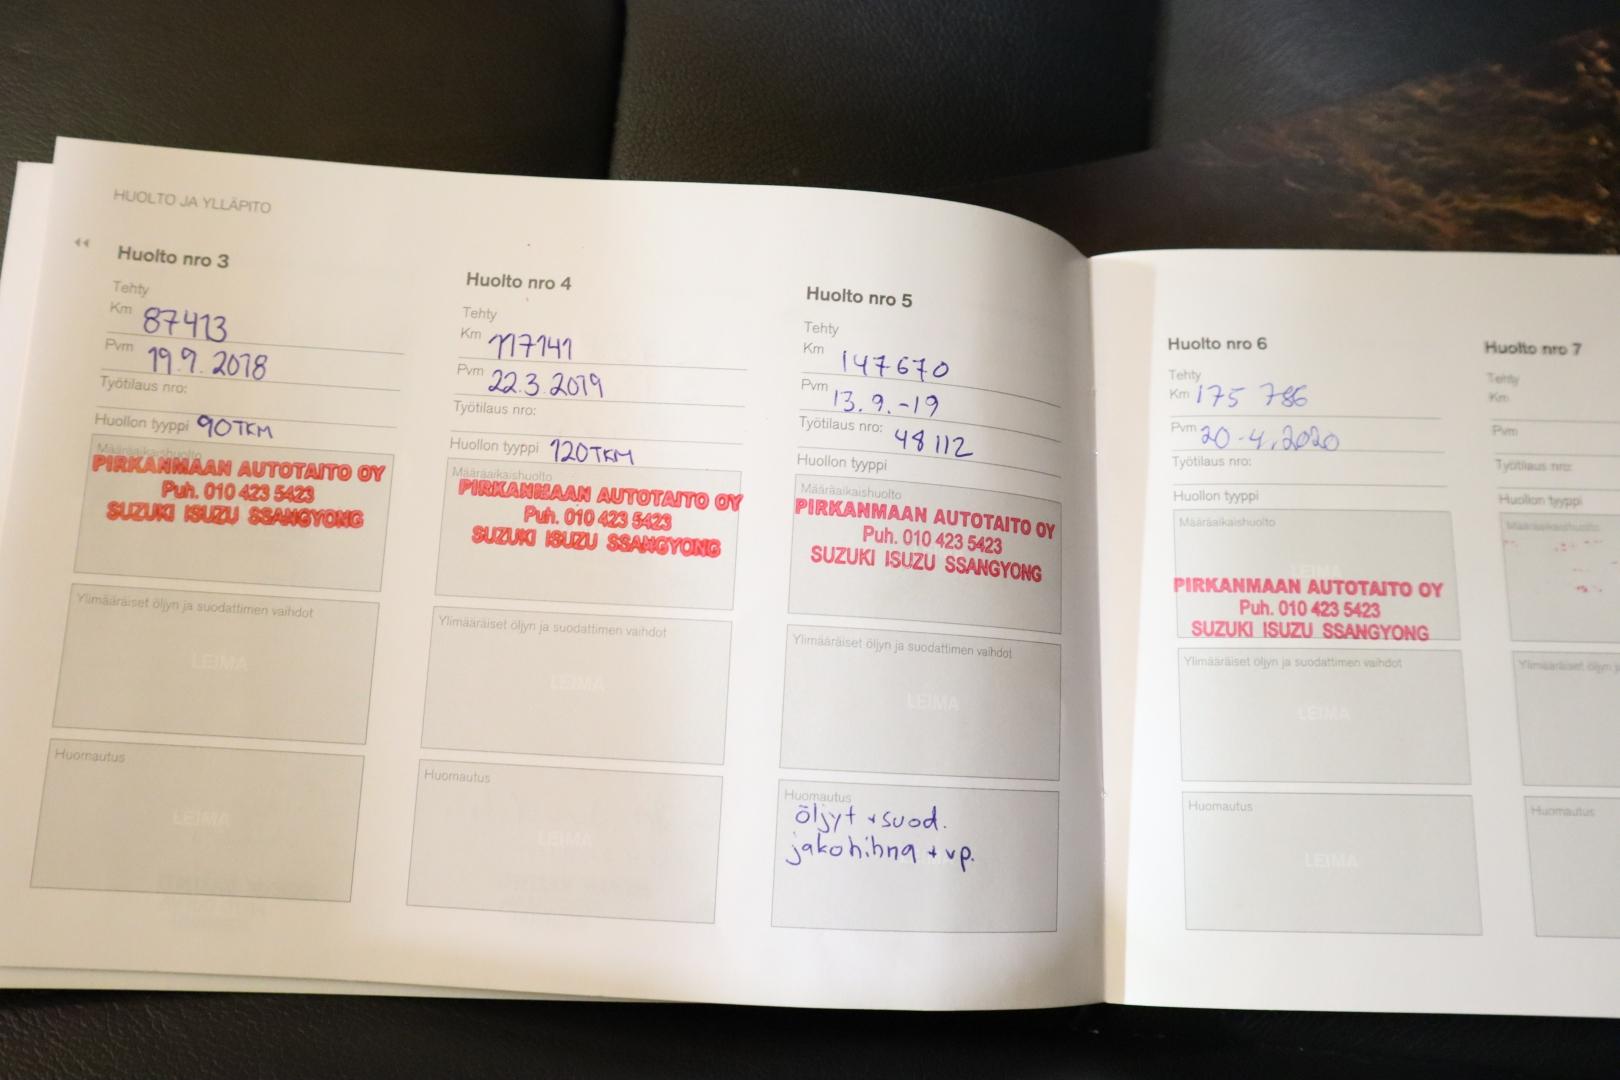 HUOLTO JA YLLÄPITO
Huolto nro 3
Tehty
Km 87413
Pvm 19.9.2018
Työtilaus nro:
Huollon tyyppi 90TKM
Määräaikaishuolto
PIRKANMAAN AUTOTAITO OY
Puh. 010 423 5423
SUZUKI ISUZU SSANGYONG
Ylimääräiset öljyn ja suodattimen vaihdot
LEIMA
Huomautus
LEIMA
Huolto nro 4
Tehty
Km 117141
Pvm 22.3.2019
Työtilaus nro:
Huollon tyyppi 120TKM
Määräaikaishuolto
PIRKANMAAN AUTOTAITO OY
Puh. 010 423 5423
SUZUKI ISUZU SSANGYONG
Ylimääräiset öljyn ja suodattimen vaihdot
LEIMA
Huomautus
LEIMA
Huolto nro 5
Tehty
Km 147670
Pvm 13.9.-19
Työtilaus nro: 48112
Huollon tyyppi
Määräaikaishuolto
PIRKANMAAN AUTOTAITO OY
Puh. 010 423 5423
SUZUKI ISUZU SSANGYONG
Ylimääräiset öljyn ja suodattimen vaihdot
LEIMA
Huomautus
öljyt + suod.
jakohihna + vp.
Huolto nro 6
Tehty
Km 175 786
Pvm 20.4.2020
Työtilaus nro:
Huollon tyyppi
Määräaikaishuolto
LEIMA
PIRKANMAAN AUTOTAITO OY
Puh. 010 423 5423
SUZUKI ISUZU SSANGYONG
Ylimääräiset öljyn ja suodattimen vaihdot
LEIMA
Huomautus
LEIMA
Huolto nro 7
Tehty
Km
Pvm
Työtilaus nro:
Huollon tyyppi
Määräaikaishuolto
Ylimääräiset öljyn
Huomautus